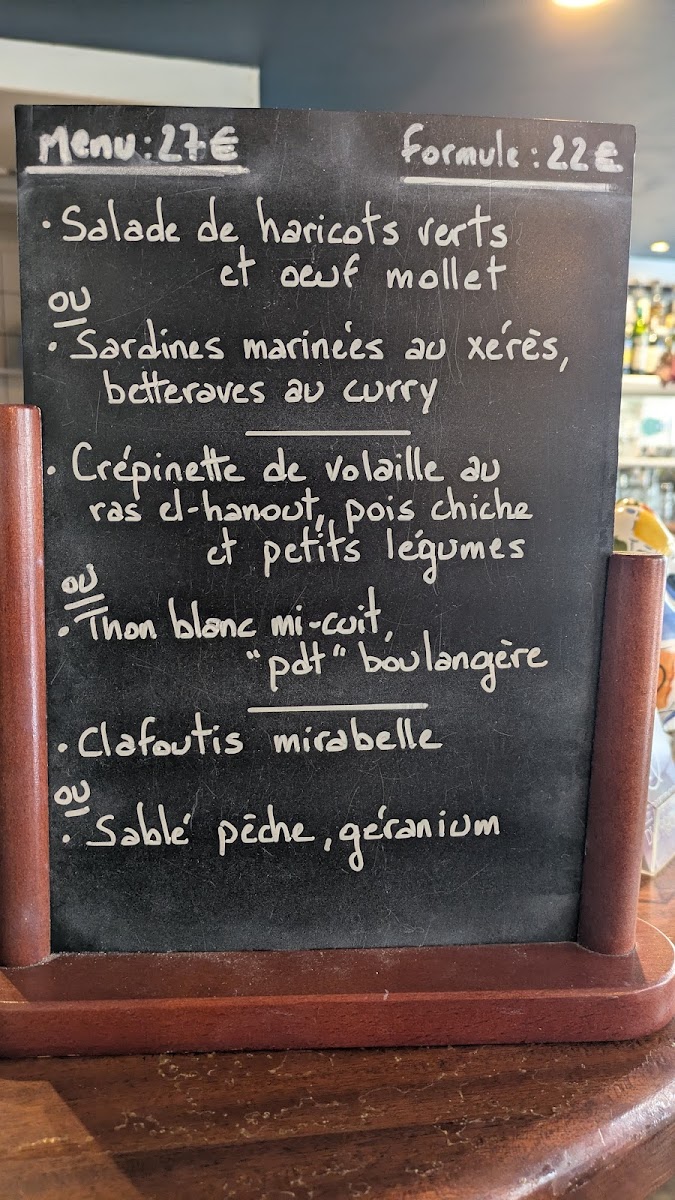 Menu : 27€
Formule : 22€
• Salade de haricots verts
et oeuf mollet
ou
• Sardines marinées au xérès,
betteraves au curry
• Crépinette de volaille au
ras el-hanout, pois chiche
et petits légumes
ou
• Thon blanc mi-cuit,
"pdt" boulangère
• Clafoutis mirabelle
ou
• Sablé pêche, géranium